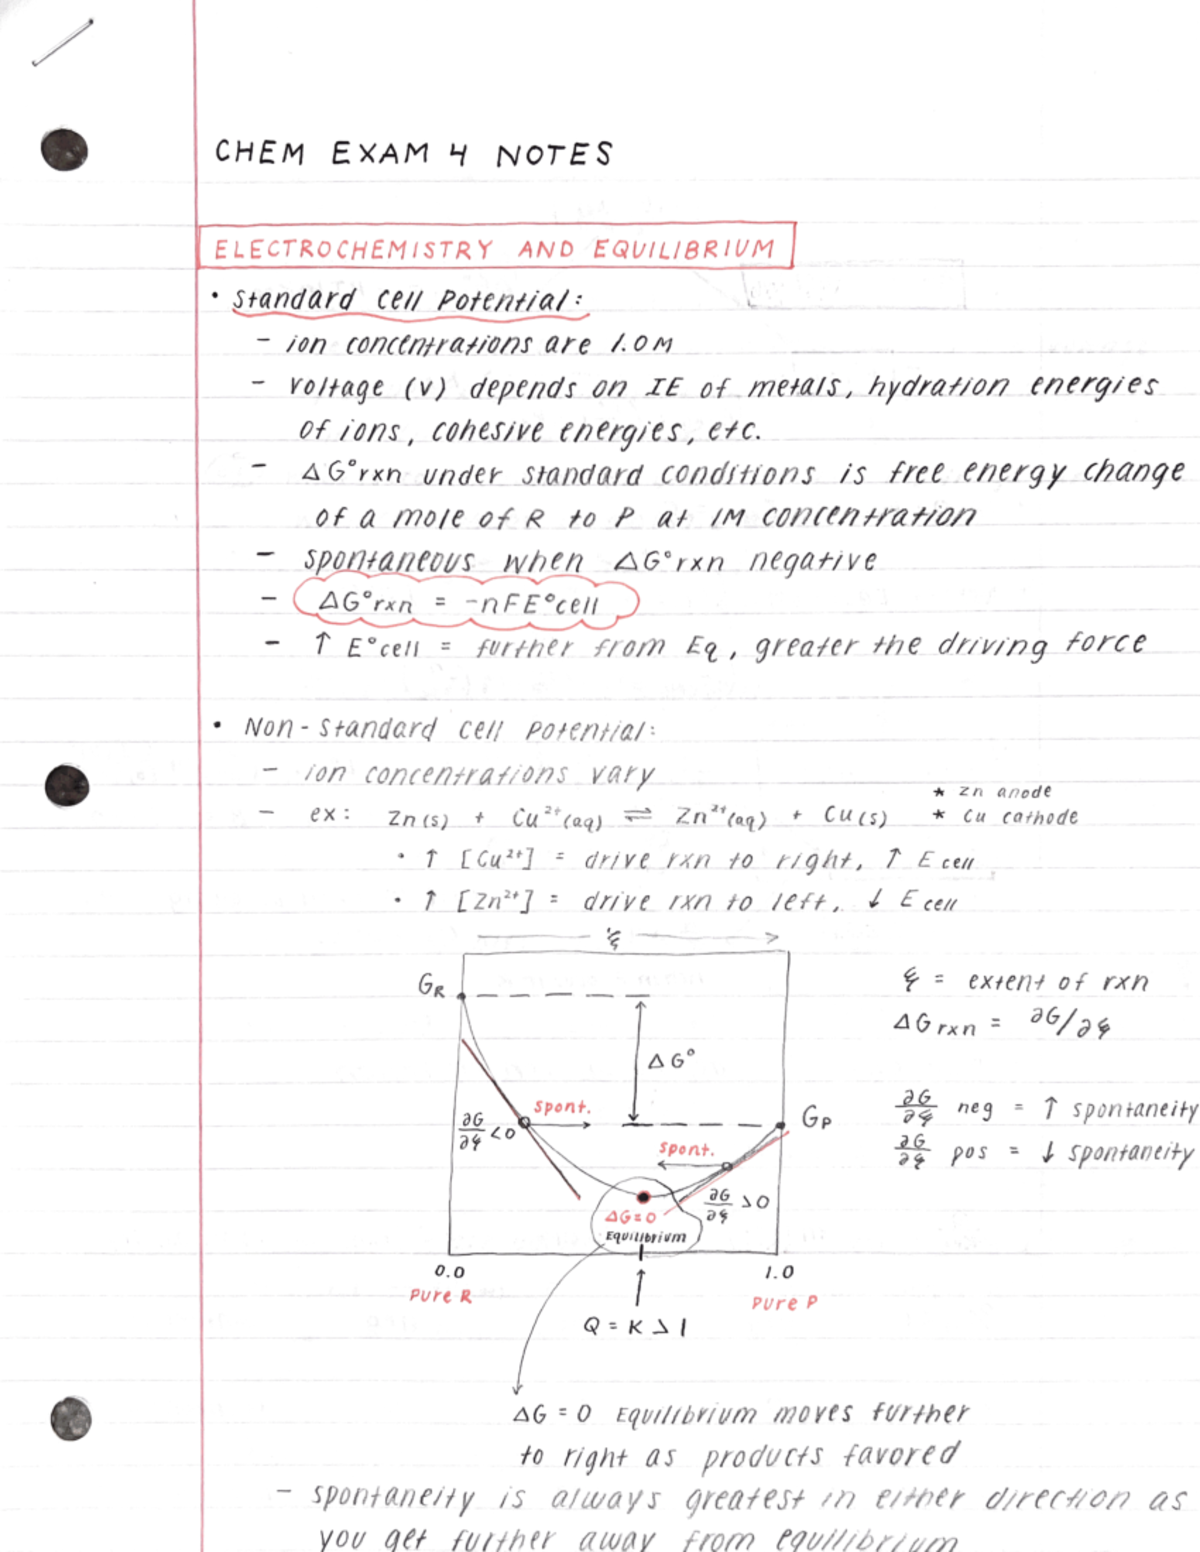 CHEM EXAM 4 NOTES
ELECTROCHEMISTRY AND EQUILIBRIUM
• Standard Cell Potential:
- ion concentrations are 1.0M
- voltage (V) depends on IE of metals, hydration energies
of ions, cohesive energies, etc.
- ΔG°rxn under standard conditions is free energy change
of a mole of R to P at 1M concentration
- spontaneous when ΔG°rxn negative
- ΔG°rxn = -nFE°cell
- ↑ E°cell = further from Eq, greater the driving force
• Non-Standard Cell Potential:
- ion concentrations vary
* Zn anode
- ex: Zn(s) + Cu²⁺(aq) ⇌ Zn²⁺(aq) + Cu(s)
* Cu cathode
• ↑ [Cu²⁺] = drive rxn to right, ↑ Ecell
• ↑ [Zn²⁺] = drive rxn to left, ↓ Ecell
ξ
GR
ξ = extent of rxn
ΔGrxn = ∂G/∂ξ
ΔG°
spont.
∂G/∂ξ <0
GP
spont.
∂G/∂ξ neg = ↑ spontaneity
∂G/∂ξ pos = ↓ spontaneity
∂G/∂ξ >0
ΔG=0
Equilibrium
0.0
1.0
Pure R
Pure P
Q = K > 1
ΔG = 0 Equilibrium moves further
to right as products favored
- spontaneity is always greatest in either direction as
you get further away from equilibrium